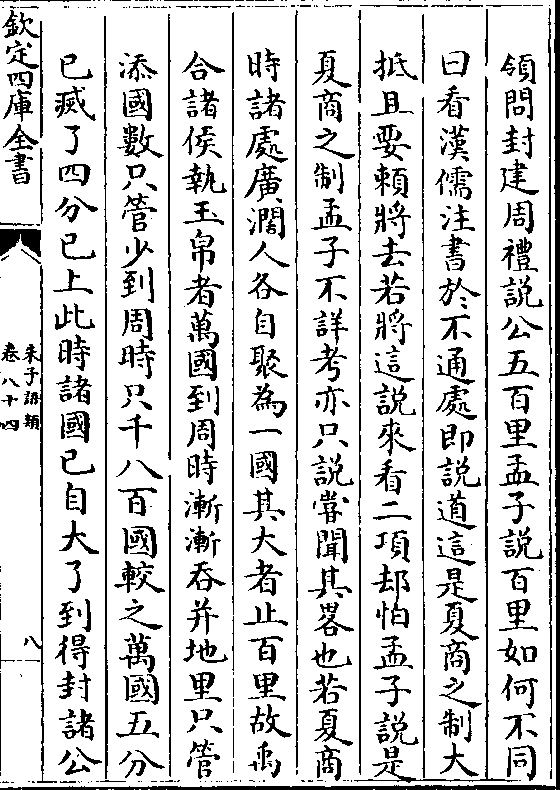 領問封建周禮說公五百里孟子說百里如何不同
曰看漢儒注書於不通處即說道這是夏商之制大
抵且要賴將去若將這說來看二項却怕孟子說是
夏商之制孟子不詳考亦只說嘗聞其畧也若夏商
時諸處廣濶人各自聚為一國其大者止百里故禹
合諸侯執玉帛者萬國到周時漸漸吞并地里只管
添國數只管少到周時只千八百國較之萬國五分
已滅了四分已上此時諸國已自大了到得封諸公
欽定四庫全書
朱子語類
卷八十四
八